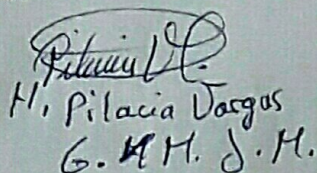 M. Pilacia Vargas
G. M H. J. M.